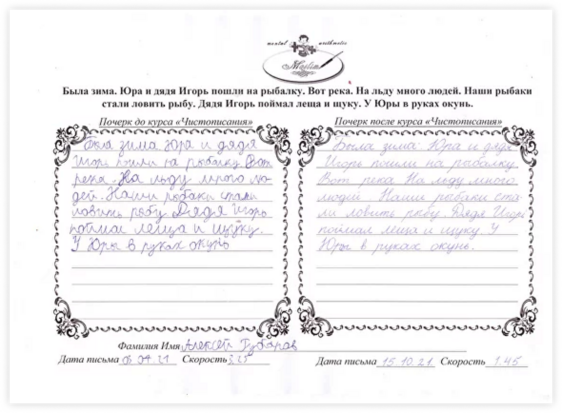 mental arithmetic
Была зима. Юра и дядя Игорь пошли на рыбалку. Вот река. На льду много людей. Наши рыбаки
стали ловить рыбу. Дядя Игорь поймал леща и щуку. У Юры в руках окунь.
Почерк до курса «Чистописания»
Была зима Юра и дядя
Игорь пошли на рыбалку. Вот
река. На льду много лю-
дей. Наши рыбаки стали
ловить рыбу Дядя Игорь
поймал леща и щуку.
У Юры в руках окунь
Почерк после курса «Чистописания»
Была зима. Юра и дядя
Игорь пошли на рыбалку.
Вот река На льду много
людей Наши рыбаки ста-
ли ловить рыбу. Дядя Игорь
поймал леща и щуку У
Юры в руках окунь.
Фамилия Имя Алексей
Дата письма 04 21 Скорость
Дата письма 15.10.21 Скорость 1.45